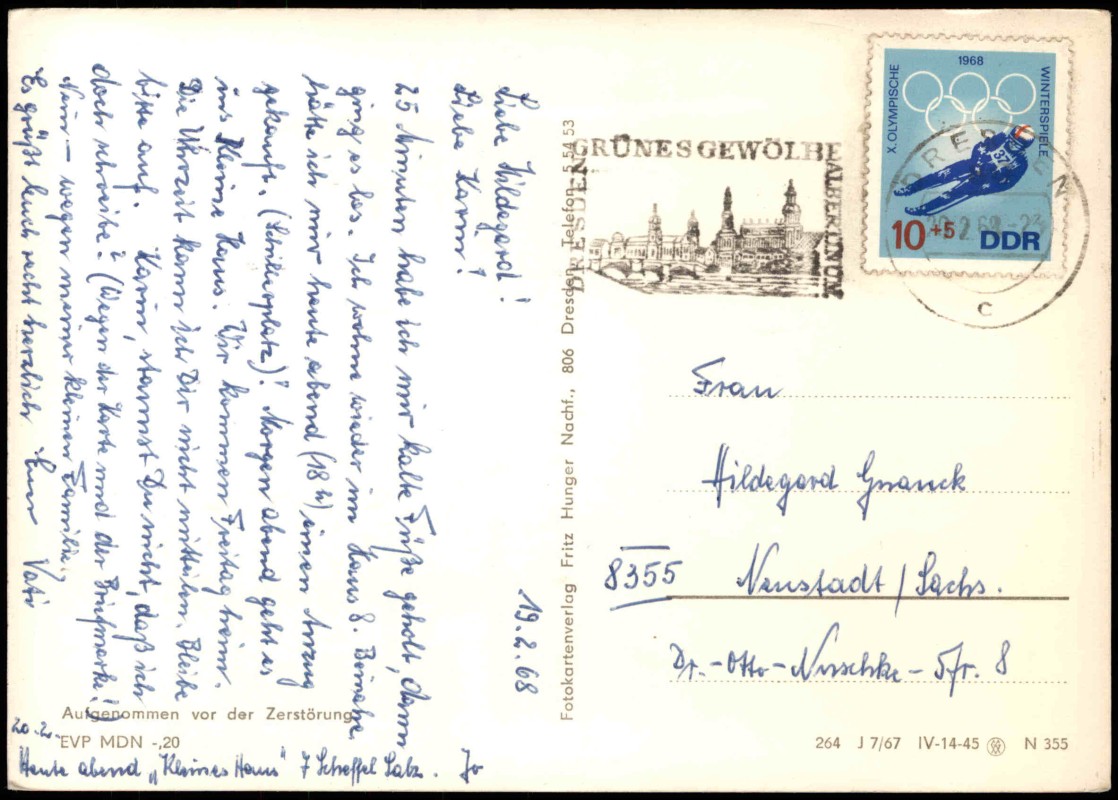 19.2.68
Liebe Hildegard!
Liebe Karin!
25 Minuten habe ich mir kalte Füße geholt, dann
ging es los. Ich wohne wieder im Haus 8. Beinahe
hätte ich mir heute abend (18 h) einen Anzug
gekauft. (Leninplatz)! Morgen abend geht es
ins Kleine Haus. Wir kommen Freitag heim.
Die Uhrzeit kann ich Dir nicht mitteilen. Bleibe
bitte auf. Karin, staunst Du nicht, daß ich
doch schreibe? (Wegen der Karte und der Briefmarke!)
Nein – wegen meiner kleinen Familie;
Es grüßt Euch recht herzlich Euer Vati
Aufgenommen vor der Zerstörung
20.2.
EVP MDN -,20
Heute abend „Kleines Haus" 7 Scheffel Salz. Jo
Fotokartenverlag Fritz Hunger Nachf., 806 Dresden, Telefon 5 54 53
DRESDEN
GRÜNES GEWÖLBE
ALBERTINUM
1968
X. OLYMPISCHE
WINTERSPIELE
37
10+5 DDR
DRESDEN
C
Frau
Hildegard Gnauck
8355 Neustadt/Sachs.
Dr.-Otto-Nuschke-Str. 8
264 J 7/67 IV-14-45 N 355